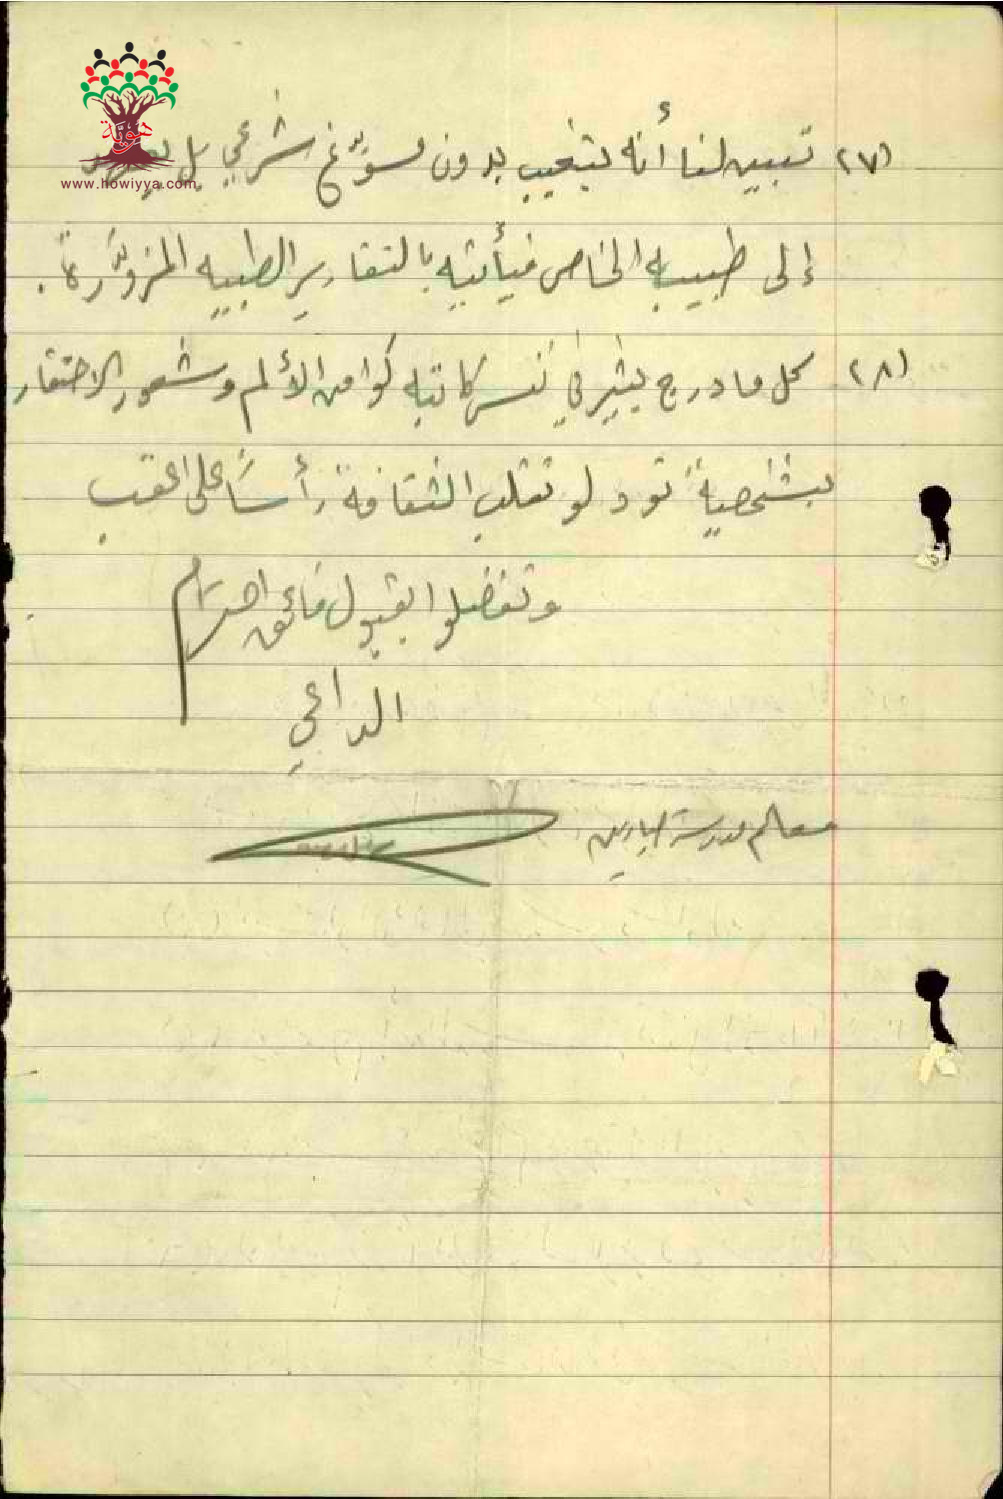 هوية
www.howiyya.com
(٢٧ تبين لنا أنه يتغيب بدون مسوّغ شرعي بل
إلى طبيبه الخاص فيأتيه بالتقارير الطبيه المزوّرة.
(٢٨ كل ما درج يثير في نفس كاتبه كوامن الألم وشعور الاحتقار
لشخصية تود لو تقلب الثقافة رأساً على عقب
وتفضلوا بقبول فائق احترام
الداعي
معلم مدرسة